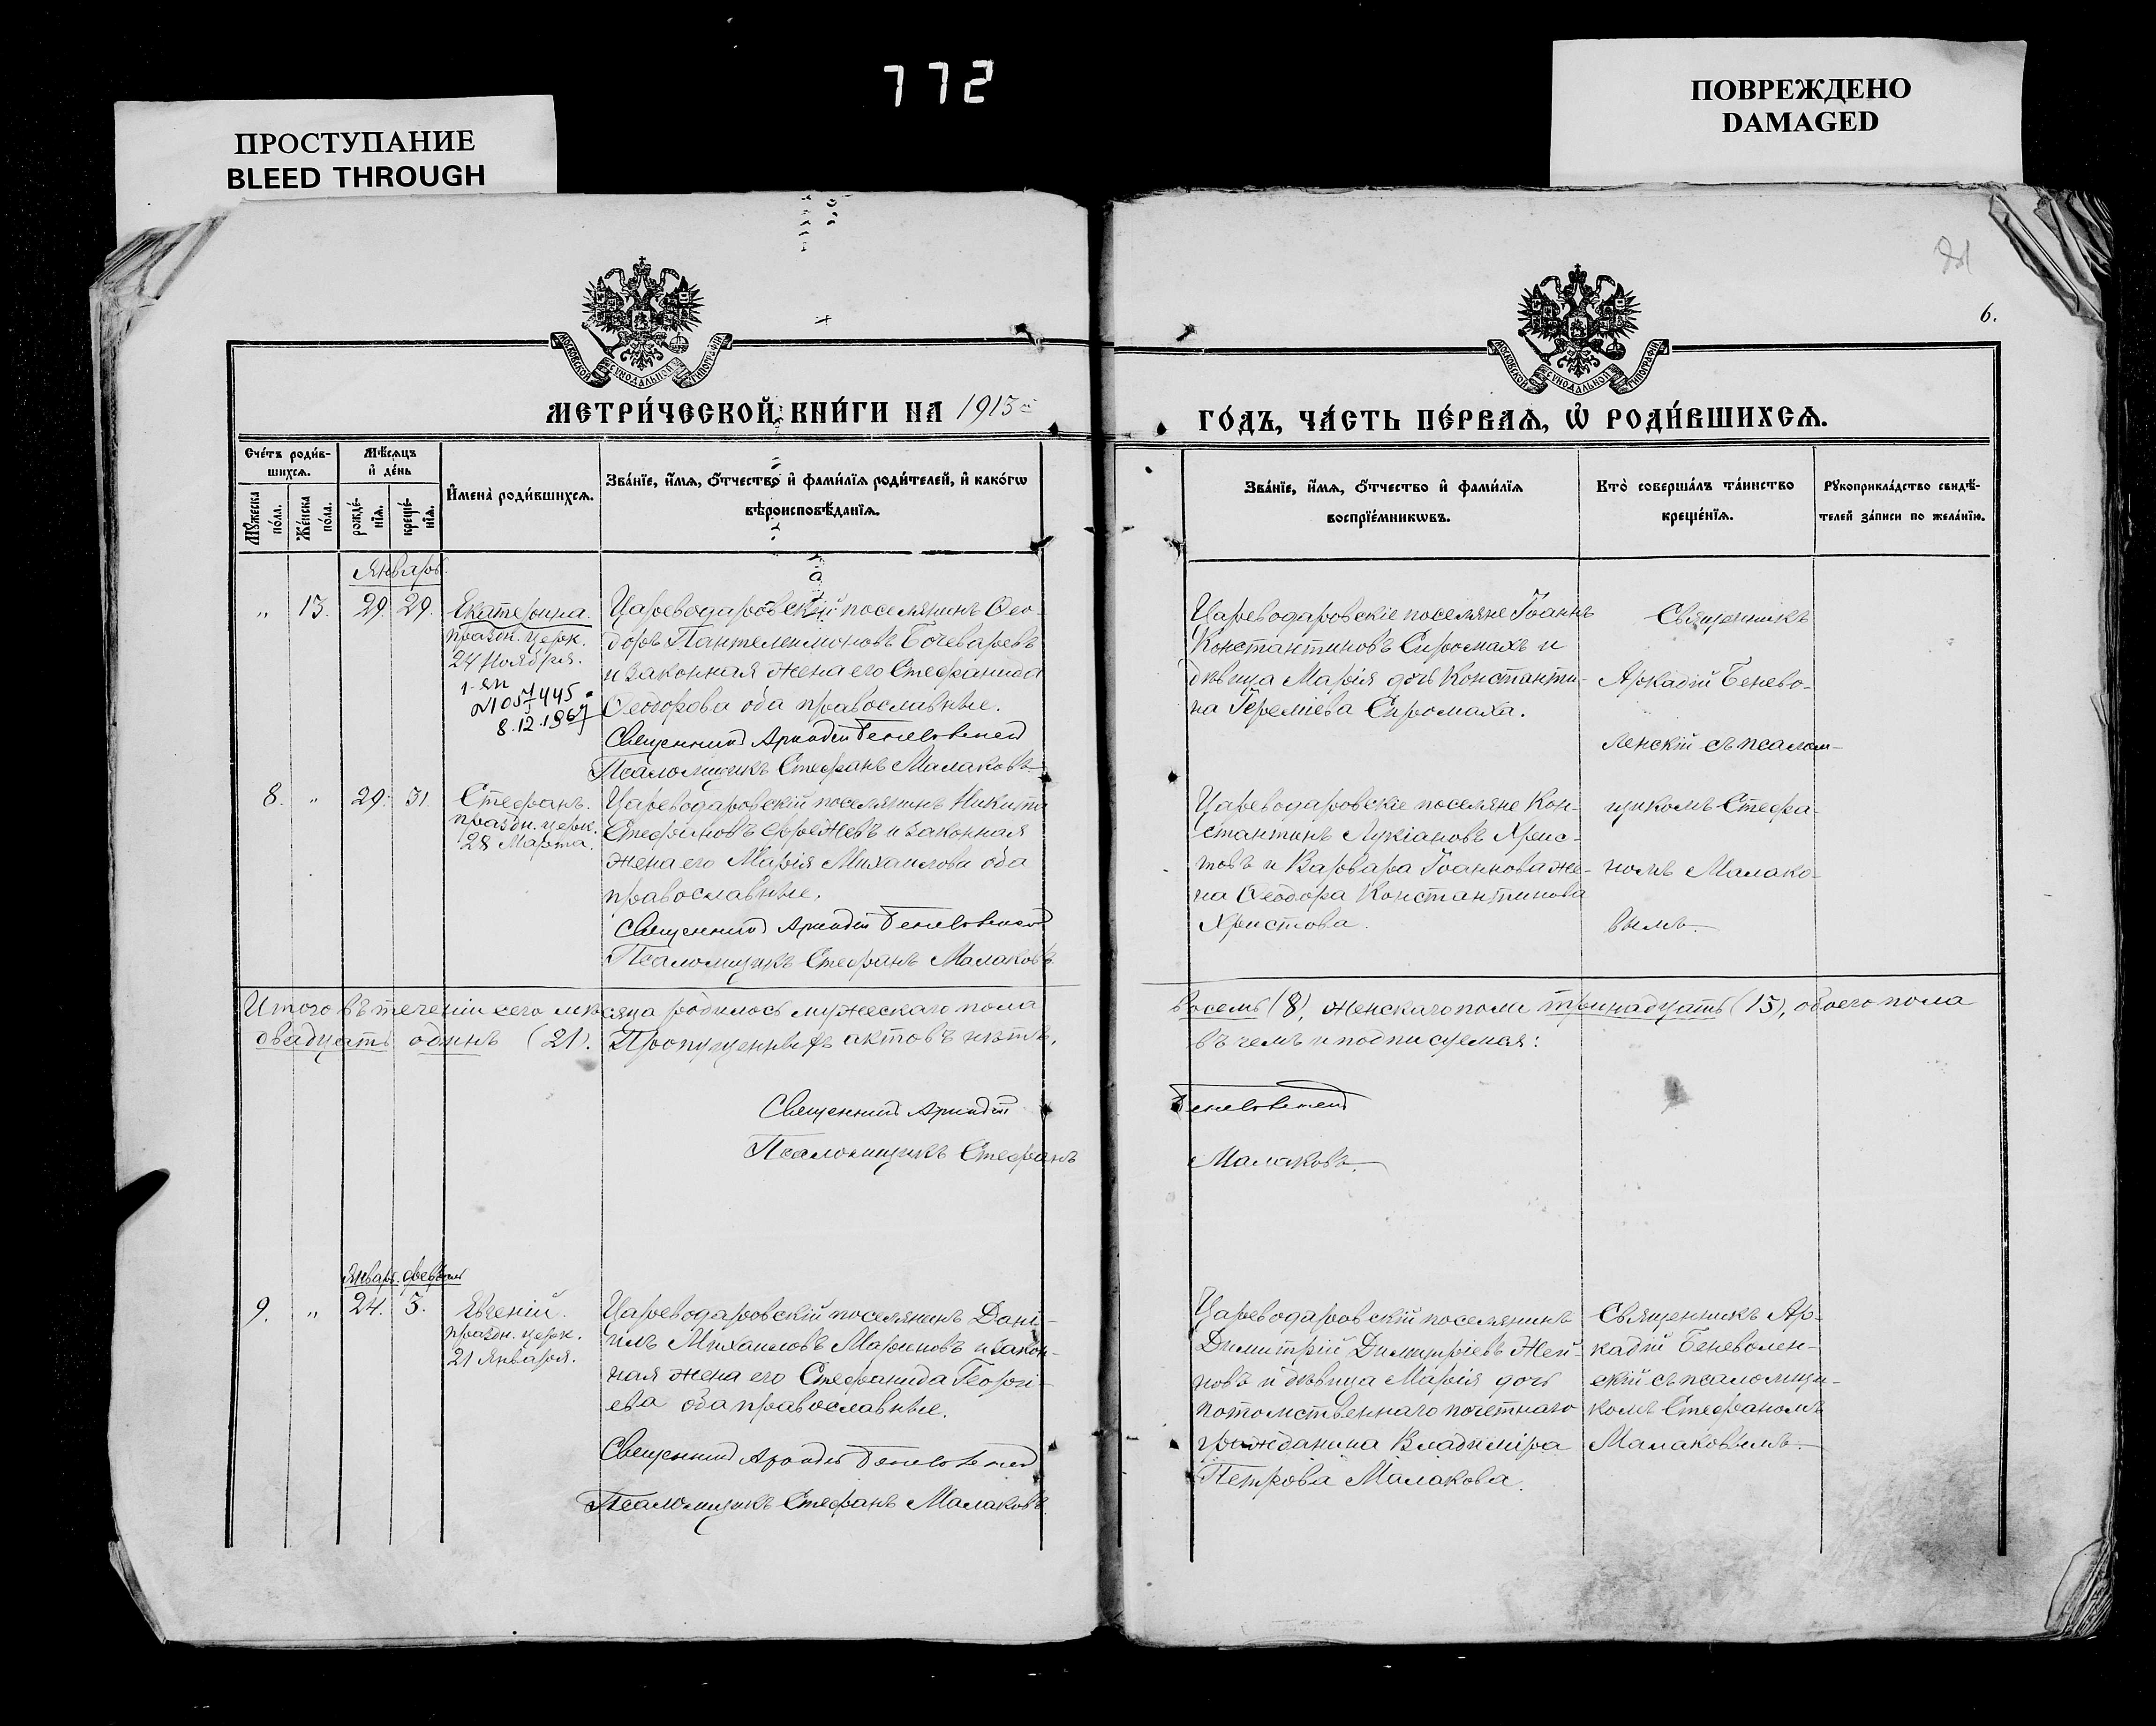 772
ПРОСТУПАНИЕ
BLEED THROUGH
ПОВРЕЖДЕНО
DAMAGED
6.
МОСКОВСКОЙ СѴНОДАЛЬНОЙ ТИПОГРАФІИ
МОСКОВСКОЙ СѴНОДАЛЬНОЙ ТИПОГРАФІИ
МЕТРИ́ЧЕСКОЙ КНИ́ГИ НА 1915
ГО́ДЪ, ЧА́СТЬ ПЕ́РВАѦ, Ѽ РОДИ́ВШИХСѦ.
Сче́тъ роди́в-
шихсѧ.
Мѣ́сѧцъ
и҆ де́нь
Мꙋ́жеска
по́ла.
Же́нска
по́ла.
рожде́-
нїѧ.
креще́-
нїѧ.
И҆мена̀ роди́вшихсѧ.
Зва́нїе, и҆́мѧ, ѻ҆́тчество и҆ фами́лїѧ роди́телей, и҆ како́гѡ
вѣроисповѣ́данїѧ.
Зва́нїе, и҆́мѧ, ѻ҆́тчество и҆ фами́лїѧ
воспрїе́мникѡвъ.
Кто̀ соверша́лъ та́инство
креще́нїѧ.
Рꙋкоприкла́дство свидѣ́-
телей за́писи по жела́нїю.
Январь.
„ 13. 29. 29. Екатерина.
праздн. церк.
24 Ноября.
8.12.1967
Цареводаровскій поселянинъ Ѳео-
доръ Пантелеимоновъ Бочеваревъ
и законная жена его Стефанида
Ѳеодорова оба православные.
Священникъ Аркадій Беневоленскій
Псаломщикъ Стефанъ Малаковъ
Цареводаровскіе поселяне Іоаннъ
Константиновъ Сиромахъ и
дѣвица Марія дочь Константи-
на Іеремiева Сиромаха.
Священникъ
Аркадій Бенево-
ленскій съ псалом-
щикомъ Стефа-
номъ Малако-
вымъ
8. „ 29. 31. Стефанъ.
праздн. церк.
28 Марта.
Цареводаровскій поселянинъ Никита
Стефановъ и законная
жена его Марія Михаилова оба
православные.
Священникъ Аркадій Беневоленскій
Псаломщикъ Стефанъ Малаковъ
Цареводаровскіе поселяне Кон-
стантинъ Лукіановъ Хрис-
товъ и Варвара Іоаннова же-
на Ѳеодора Константинова
Христова.
Итого въ теченіи сего мѣсяца родилось мужескаго пола
восемь (8), женскаго пола тринадцать (13), обоего пола
двадцать одинъ (21). Пропущенныхъ актовъ нѣтъ,
въ чемъ и подписуемся:
Священникъ Аркадій
Беневоленскій
Псаломщикъ Стефанъ
Малаковъ.
Январь. Февраль
9. „ 24. 3. Евгеній.
праздн. церк.
21 Января.
Цареводаровскій поселянинъ Дані-
илъ Михаиловъ Мариновъ и закон-
ная жена его Стефанида Георгі-
ева оба православные.
Священникъ Аркадій Беневоленскій
Псаломщикъ Стефанъ Малаковъ
Цареводаровскій поселянинъ
Димитрій Димитріевъ Жей-
новъ и дѣвица Марія дочь
потомственнаго почетнаго
гражданина Владиміра
Петрова Малакова.
Священникъ Ар-
кадій Беневолен-
скій съ псаломщи-
комъ Стефаномъ
Малаковымъ.